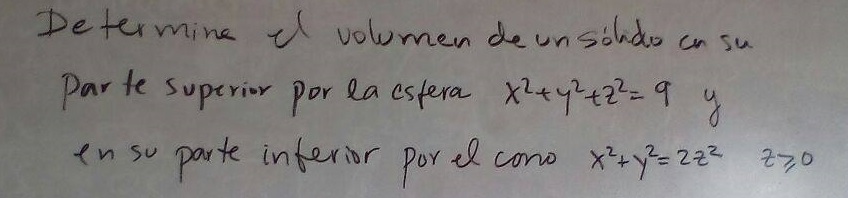 Determina el volumen de un sólido en su
parte superior por la esfera x²+y²+z²=9 y
en su parte inferior por el cono x²+y²=2z² z≥0